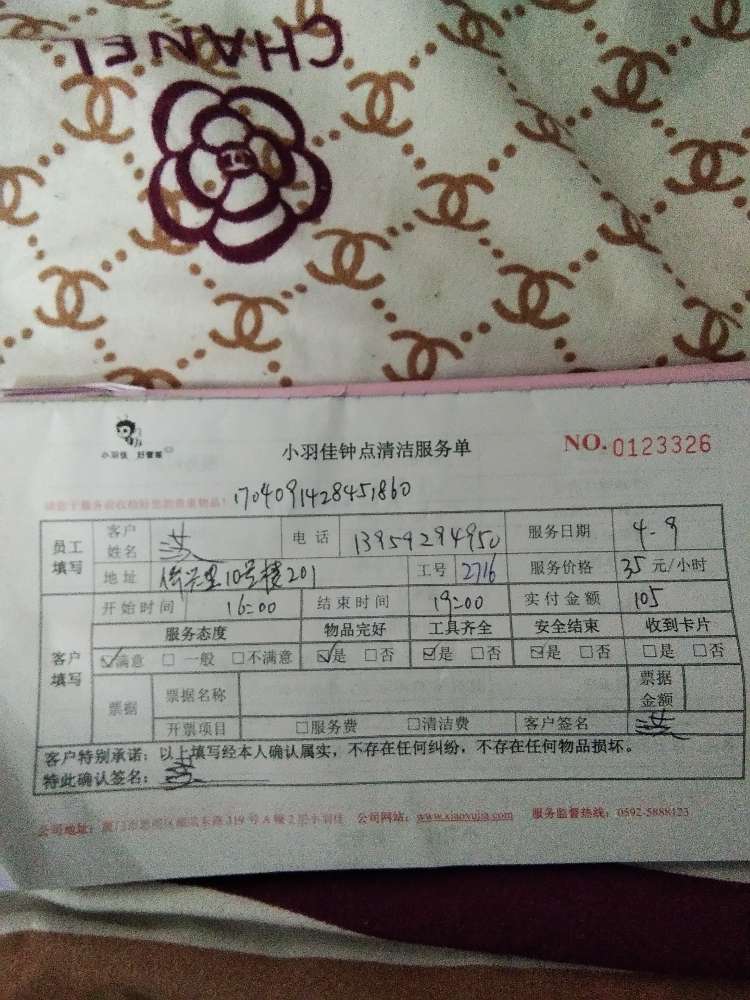 CHANEL
小羽佳 好管家
小羽佳钟点清洁服务单
NO. 0123326
1704091428451860
员工填写 客户姓名 电话 13959294950 服务日期 4-9
地址 10号楼201 工号 2716 服务价格 35 元/小时
客户填写 开始时间 16:00 结束时间 19:00 实付金额 105
服务态度 物品完好 工具齐全 安全结束 收到卡片
☑满意 □一般 □不满意 ☑是 □否 ☑是 □否 ☑是 □否 □是 □否
票据 票据名称 票据金额
开票项目 □服务费 □清洁费 客户签名
客户特别承诺：以上填写经本人确认属实，不存在任何纠纷，不存在任何物品损坏。
特此确认签名：
公司地址：厦门市思明区 东路 319 号 A 幢 2 小羽佳 公司网站：www.xiaoyujia.com 服务监督热线：0592-5888123